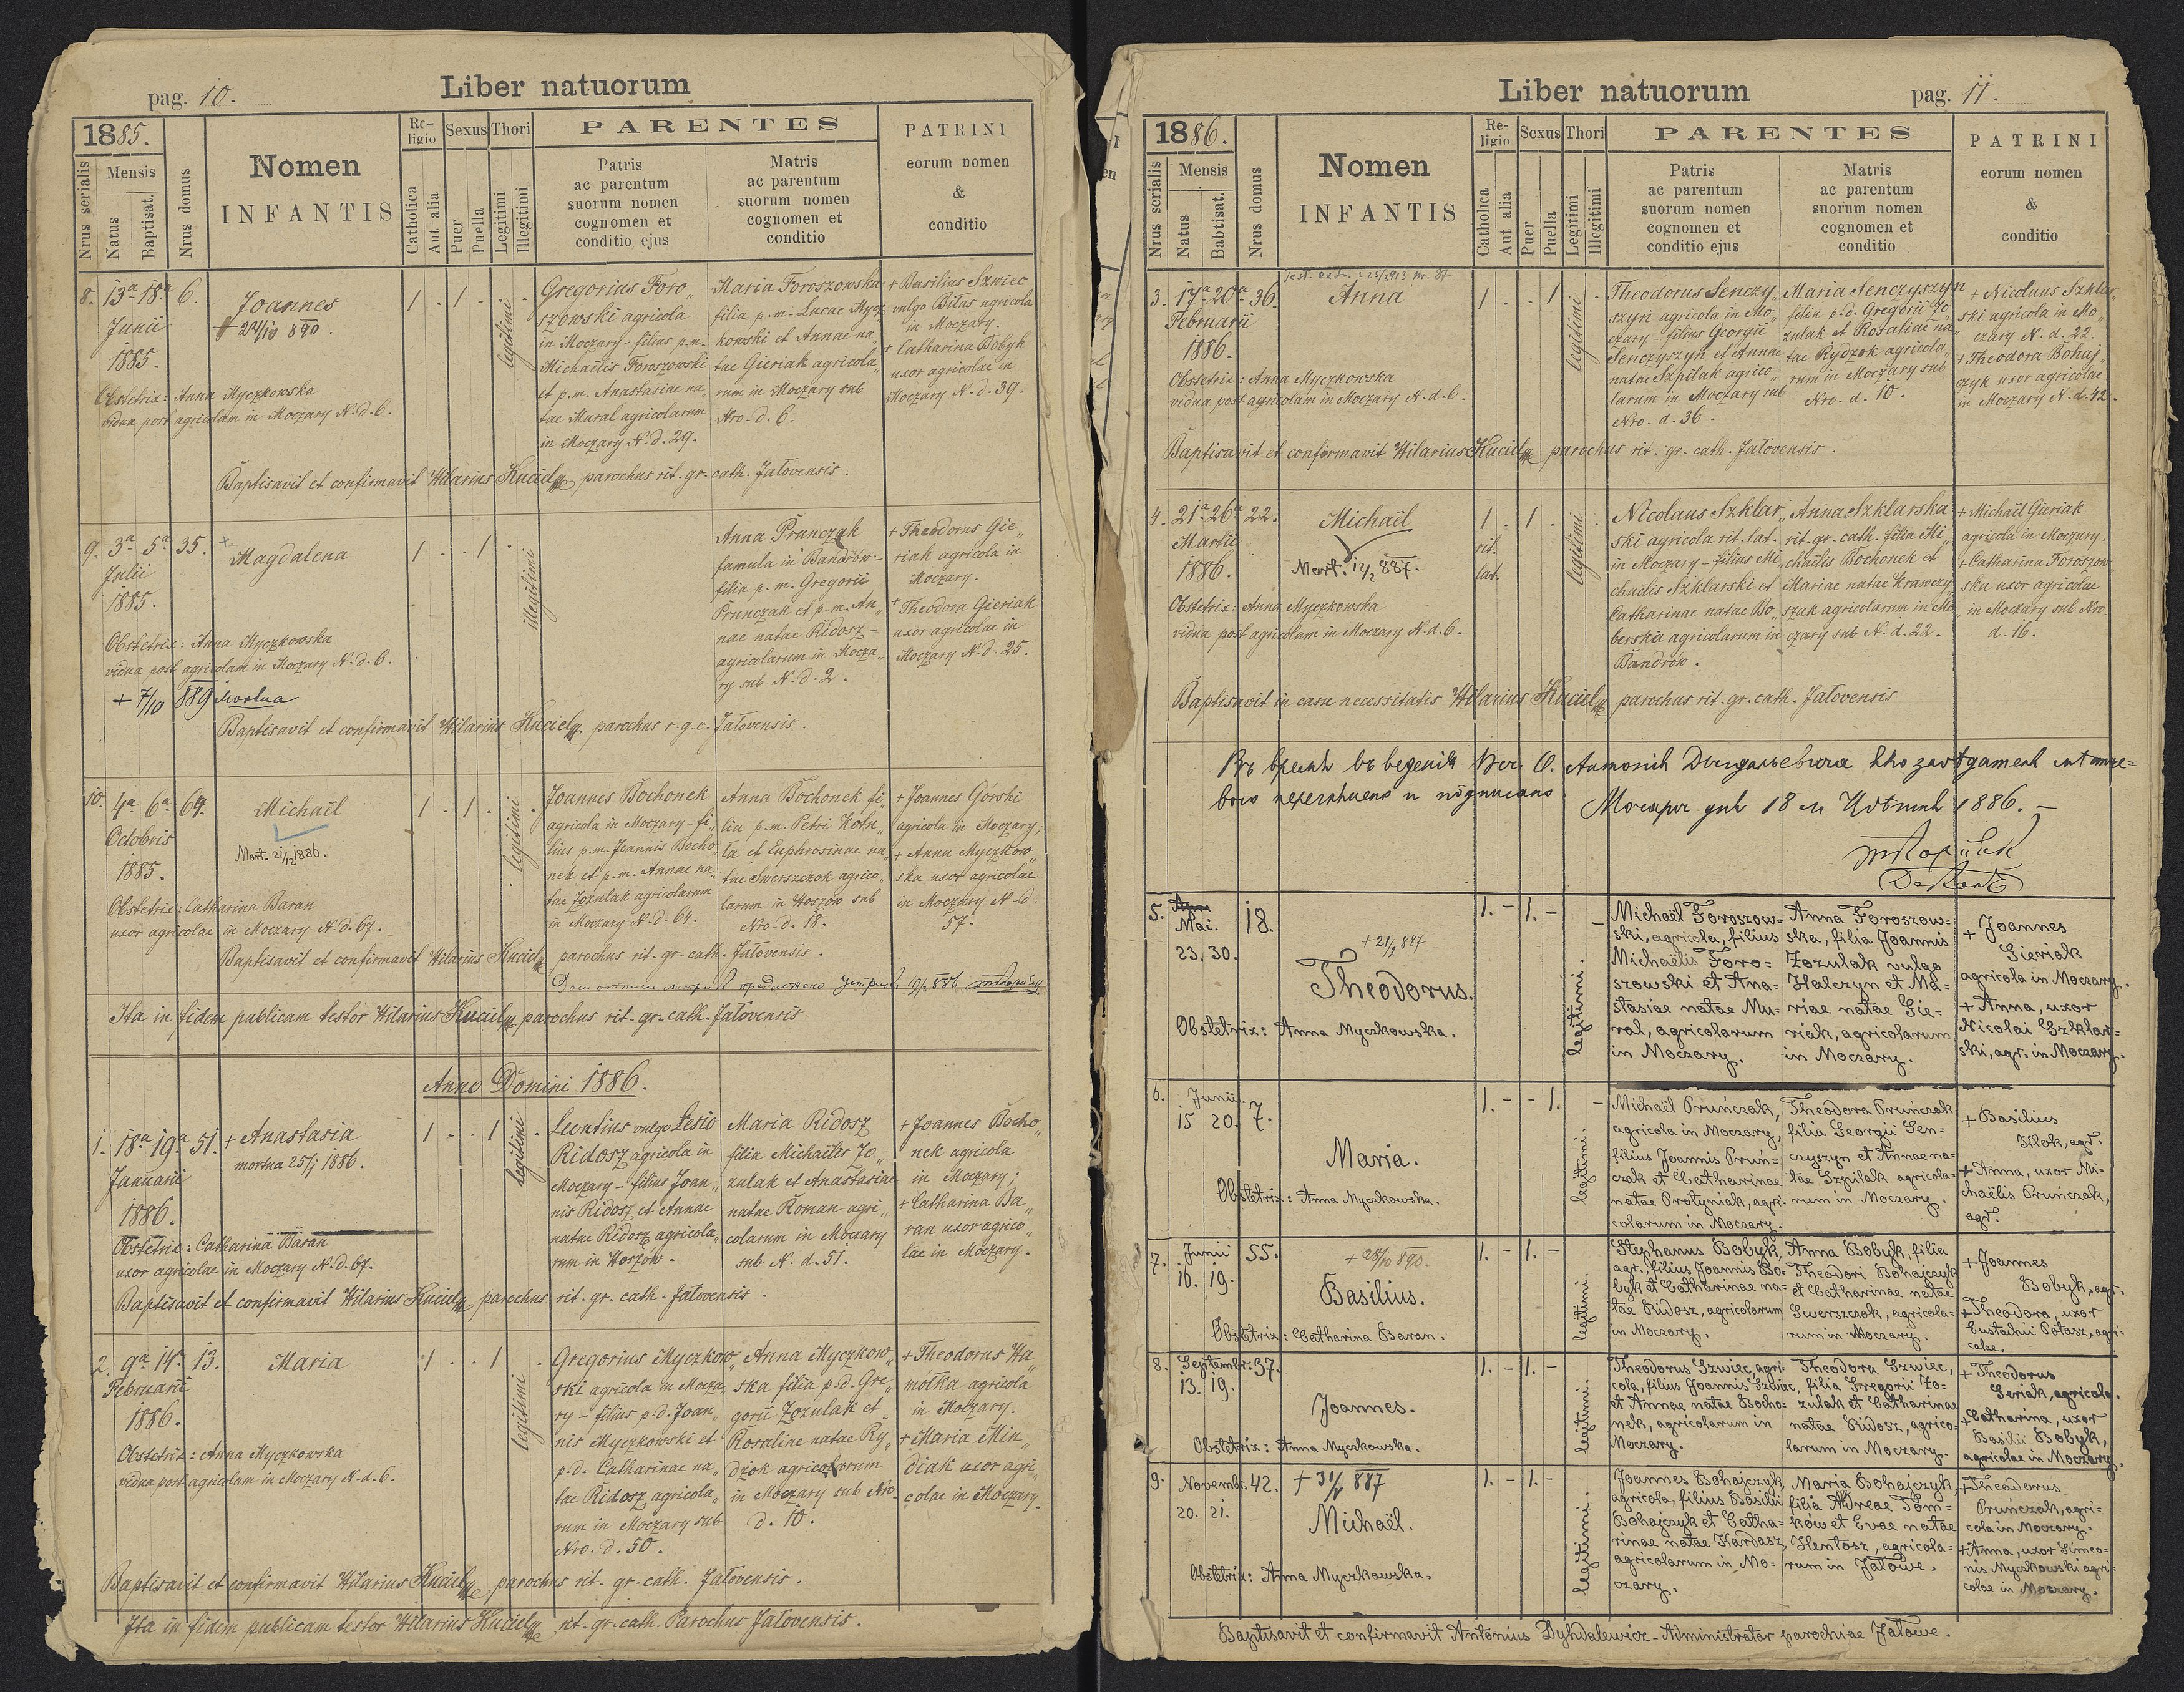 pag. 10.
Liber natuorum
1885.
Nrus serialis
Mensis
Natus
Baptisat.
Nrus domus
Nomen
INFANTIS
Re-
ligio
Catholica
Aut alia
Sexus
Puer
Puella
Thori
Legitimi
Illegitimi
PARENTES
Patris
ac parentum
suorum nomen
cognomen et
conditio ejus
Matris
ac parentum
suorum nomen
cognomen et
conditio
PATRINI
eorum nomen
&
conditio
8. 13a 18a 6.
Junii
1885.
Joannes
+ 28/10 890.
1 . 1 - legitimi -
Gregorius Foro„
szowski agricola
in Moczary - filius p.m.
Michaëlis Foroszowski
et p.m. Anastasiae na„
tae Mural agricolarum
in Moczary N. d. 29.
Maria Foroszowska
filia p.m. Lucae Mycz„
kowski et Annae na„
tae Gieriak agricola„
rum in Moczary sub
Nro. d. 6.
+ Basilius Szwiec
vulgo Bilas agricola
in Moczary.
+ Catharina Bobyk
uxor agricolae in
Moczary N. d. 39.
Obstetrix: Anna Myczkowska
vidua post agricolam in Moczary N. d. 6.
Baptisavit et confirmavit Hilarius Kuciel parochus rit. gr. cath. Jałovensis.
9. 3a 5a 35.
Julii
1885.
+
Magdalena
1 . . 1 . illegitimi
Anna Prunczak
famula in Bandrów -
filia p.m. Gregorii
Prunczak et p.m. An„
nae natae Ridosz -
agricolarum in Mocza„
ry sub N. d. 2.
+ Theodorus Gie„
riak agricola in
Moczary.
+ Theodora Gieriak
uxor agricolae in
Moczary N. d. 25.
Obstetrix: Anna Myczkowska
vidua post agricolam in Moczary N. d. 6.
+ 7/10 889 mortua
Baptisavit et confirmavit Hilarius Kuciel parochus r. g. c. Jałovensis.
10. 4a 6a 64.
Octobris
1885.
Michaël
Mort. 21/12 1886.
1 . 1 - legitimi .
Joannes Bochonek
agricola in Moczary - fi„
lius p.m. Joannis Bocho„
nek et p.m. Annae na„
tae Zozulak agricolarum
in Moczary N. d. 64.
Anna Bochonek fi„
lia p.m. Petri Kotu„
ła et Euphrosinae na„
tae Swerszczok agrico„
larum in Hoszów sub
Nro. d. 18.
+ Joannes Górski
agricola in Moczary;
+ Anna Myczkow„
ska uxor agricolae
in Moczary N. d.
57.
Obstetrix: Catharina Baran
uxor agricolae in Moczary N. d. 67.
Baptisavit et confirmavit Hilarius Kuciel parochus rit. gr. cath. Jałovensis.
Ita in fidem publicam testor Hilarius Kuciel parochus rit. gr. cath. Jałovensis
Anno Domini 1886.
1. 18a 19a 51.
Januarii
1886.
+ Anastasia
mortua 25/1 1886.
1 . . 1 legitimi .
Leontius vulgo Lesio
Ridosz agricola in
Moczary - filius Joan„
nis Ridosz et Annae
natae Ridosz agricola„
rum in Hoszów -
Maria Ridosz
filia Michaëlis Zo„
zulak et Anastasiae
natae Roman agri„
colarum in Moczary
sub N. d. 51.
+ Joannes Bocho„
nek agricola
in Moczary;
+ Catharina Ba„
ran uxor agrico„
lae in Moczary.
Obstetrix: Catharina Baran
uxor agricolae in Moczary N. d. 67.
Baptisavit et confirmavit Hilarius Kuciel parochus rit. gr. cath. Jałovensis.
2. 9a 14a 13.
Februarii
1886.
Maria
1 . . 1 . legitimi
Gregorius Myczkow„
ski agricola in Mocza„
ry - filius p.d. Joan„
nis Myczkowski et
p.d. Catharinae na„
tae Ridosz agricola„
rum in Moczary sub
Nro. d. 50.
Anna Myczkow„
ska filia p.d. Gre„
gorii Zozulak et
Rosaliae natae Ry„
dzok agricolarum
in Moczary sub Nro.
d. 10.
+ Theodorus Ha„
mołka agricola
in Moczary.
+ Maria Min„
diak uxor agri„
colae in Moczary.
Obstetrix: Anna Myczkowska
vidua post agricolam in Moczary N. d. 6.
Baptisavit et confirmavit Hilarius Kuciel parochus rit. gr. cath. Jałovensis.
Ita in fidem publicam testor Hilarius Kuciel rit. gr. cath. Parochus Jałovensis.
Liber natuorum
pag. 11.
1886.
Nrus serialis
Mensis
Natus
Babtisat.
Nrus domus
Nomen
INFANTIS
Re-
ligio
Catholica
Aut alia
Sexus
Puer
Puella
Thori
Legitimi
Illegitimi
PARENTES
Patris
ac parentum
suorum nomen
cognomen et
conditio ejus
Matris
ac parentum
suorum nomen
cognomen et
conditio
PATRINI
eorum nomen
&
conditio
3. 17a 20a 36.
Februarii
1886.
Anna
1 . . 1 legitimi .
Theodorus Senczy„
szyn agricola in Mo„
czary - filius Georgii
Senczyszyn et Annae
natae Szpilak agrico„
larum in Moczary sub
Nro. d. 36.
Maria Senczyszyn
filia p.d. Gregorii Zo„
zulak et Rosaliae na„
tae Rydzok agricola„
rum in Moczary sub
Nro. d. 10.
+ Nicolaus Szklar„
ski agricola in Mo„
czary N. d. 22.
+ Theodora Bohaj„
czyk uxor agricolae
in Moczary N. d. 42.
Obstetrix: Anna Myczkowska
vidua post agricolam in Moczary N. d. 6.
Baptisavit et confirmavit Hilarius Kuciel parochus rit. gr. cath. Jałovensis.
4. 21a 26a 22.
Martii
1886.
Michaël
Mort. 12/2 887.
1 . 1 . legitimi .
rit.
lat.
Nicolaus Szklar„
ski agricola rit. lat.
in Moczary - filius Mi„
chaëlis Szklarski et
Catharinae natae Bo„
berska agricolarum in
Bandrów.
Anna Szklarska
rit. gr. cath. filia Mi„
chaëlis Bochonek et
Mariae natae Krawczy„
szak agricolarum in Mo„
czary sub N. d. 22.
+ Michaël Gieriak
agricola in Moczary.
+ Catharina Foroszow„
ska uxor agricolae
in Moczary sub Nro.
d. 16.
Obstetrix: Anna Myczkowska
vidua post agricolam in Moczary N. d. 6.
Baptisavit in casu necessitatis Hilarius Kuciel parochus rit. gr. cath. Jałovensis
18 1886. -
5. Mai. 18.
23. 30.
+ 21/2 887
Theodorus.
1. - 1. - legitimi. -
Michaël Foroszow=
ski, agricola, filius
Michaëlis Foro=
szowski et Ana=
stasiae natae Mu=
ral, agricolarum
in Moczary.
Anna Foroszow=
ska, filia Joannis
Zozulak vulgo
Halczyn et Ma=
riae natae Gie=
riak, agricolarum
in Moczary.
+ Joannes
Gieriak
agricola in Moczary.
+ Anna, uxor
Nicolai Szklar=
ski, agr. in Moczary.
Obstetrix: Anna Myczkowska.
6. Junii. 7.
15 20.
Maria.
1. - - 1. legitimi. -
Michaël Pruńczak,
agricola in Moczary,
filius Joannis Pruń=
czak et Catharinae
natae Protyniak, agri=
colarum in Moczary.
Theodora Pruńczak
filia Georgii Sen=
czyszyn et Annae na=
tae Szpilak agricola=
rum in Moczary.
+ Basilius
Ilok, agr.
+ Anna, uxor Mi=
chaëlis Pruńczak,
agr.
Obstetrix: Anna Myczkowska.
7. Junii 55.
16. 19.
+ 28/10 890.
Basilius.
1. - 1. - legitimi.
Stephanus Bobyk,
agr., filius Joannis Bo=
byk et Catharinae na=
tae Ridosz, agricolarum
in Moczary.
Anna Bobyk, filia
Theodori Bohajczyk
et Catharinae natae
Swerszczok, agricola=
rum in Moczary.
+ Joannes
Bobyk, agr.
+ Theodora, uxor
Eustachii Potasz, agri=
colae.
Obstetrix: Catharina Baran.
8. Septembr. 37.
13. 19.
Joannes.
1. - 1. - legitimi.
Theodorus Szwiec, agri=
cola, filius Joannis Szwiec,
et Annae natae Bocho=
nek, agricolarum in
Moczary.
Theodora Szwiec,
filia Gregorii Zo=
zulak et Catharinae
natae Ridosz, agrico=
larum in Moczary.
+ Theodorus
Geriak, agricola.
+ Catharina, uxor
Basilii Bobyk,
agricolae in Moczary.
Obstetrix: Anna Myczkowska.
9. Novembr. 42.
20. 21.
Michaël.
1. - 1. - legitimi.
Joannes Bohajczyk,
agricola, filius Basilii
Bohajczyk et Catha=
rinae natae Hardasz,
agricolarum in Mo=
czary.
Maria Bohajczyk,
filia Andreae Tom=
ków et Evae natae
Hentosz, agricola=
rum in Jałowe.
+ Theodorus
Pruńczak, agri=
cola in Moczary.
+ Anna, uxor Simeo=
nis Myczkowski agri=
colae in Moczary.
Obstetrix: Anna Myczkowska.
Baptisavit et confirmavit Antonius Dyhdalewicz - Administrator parochiae Jałowe.